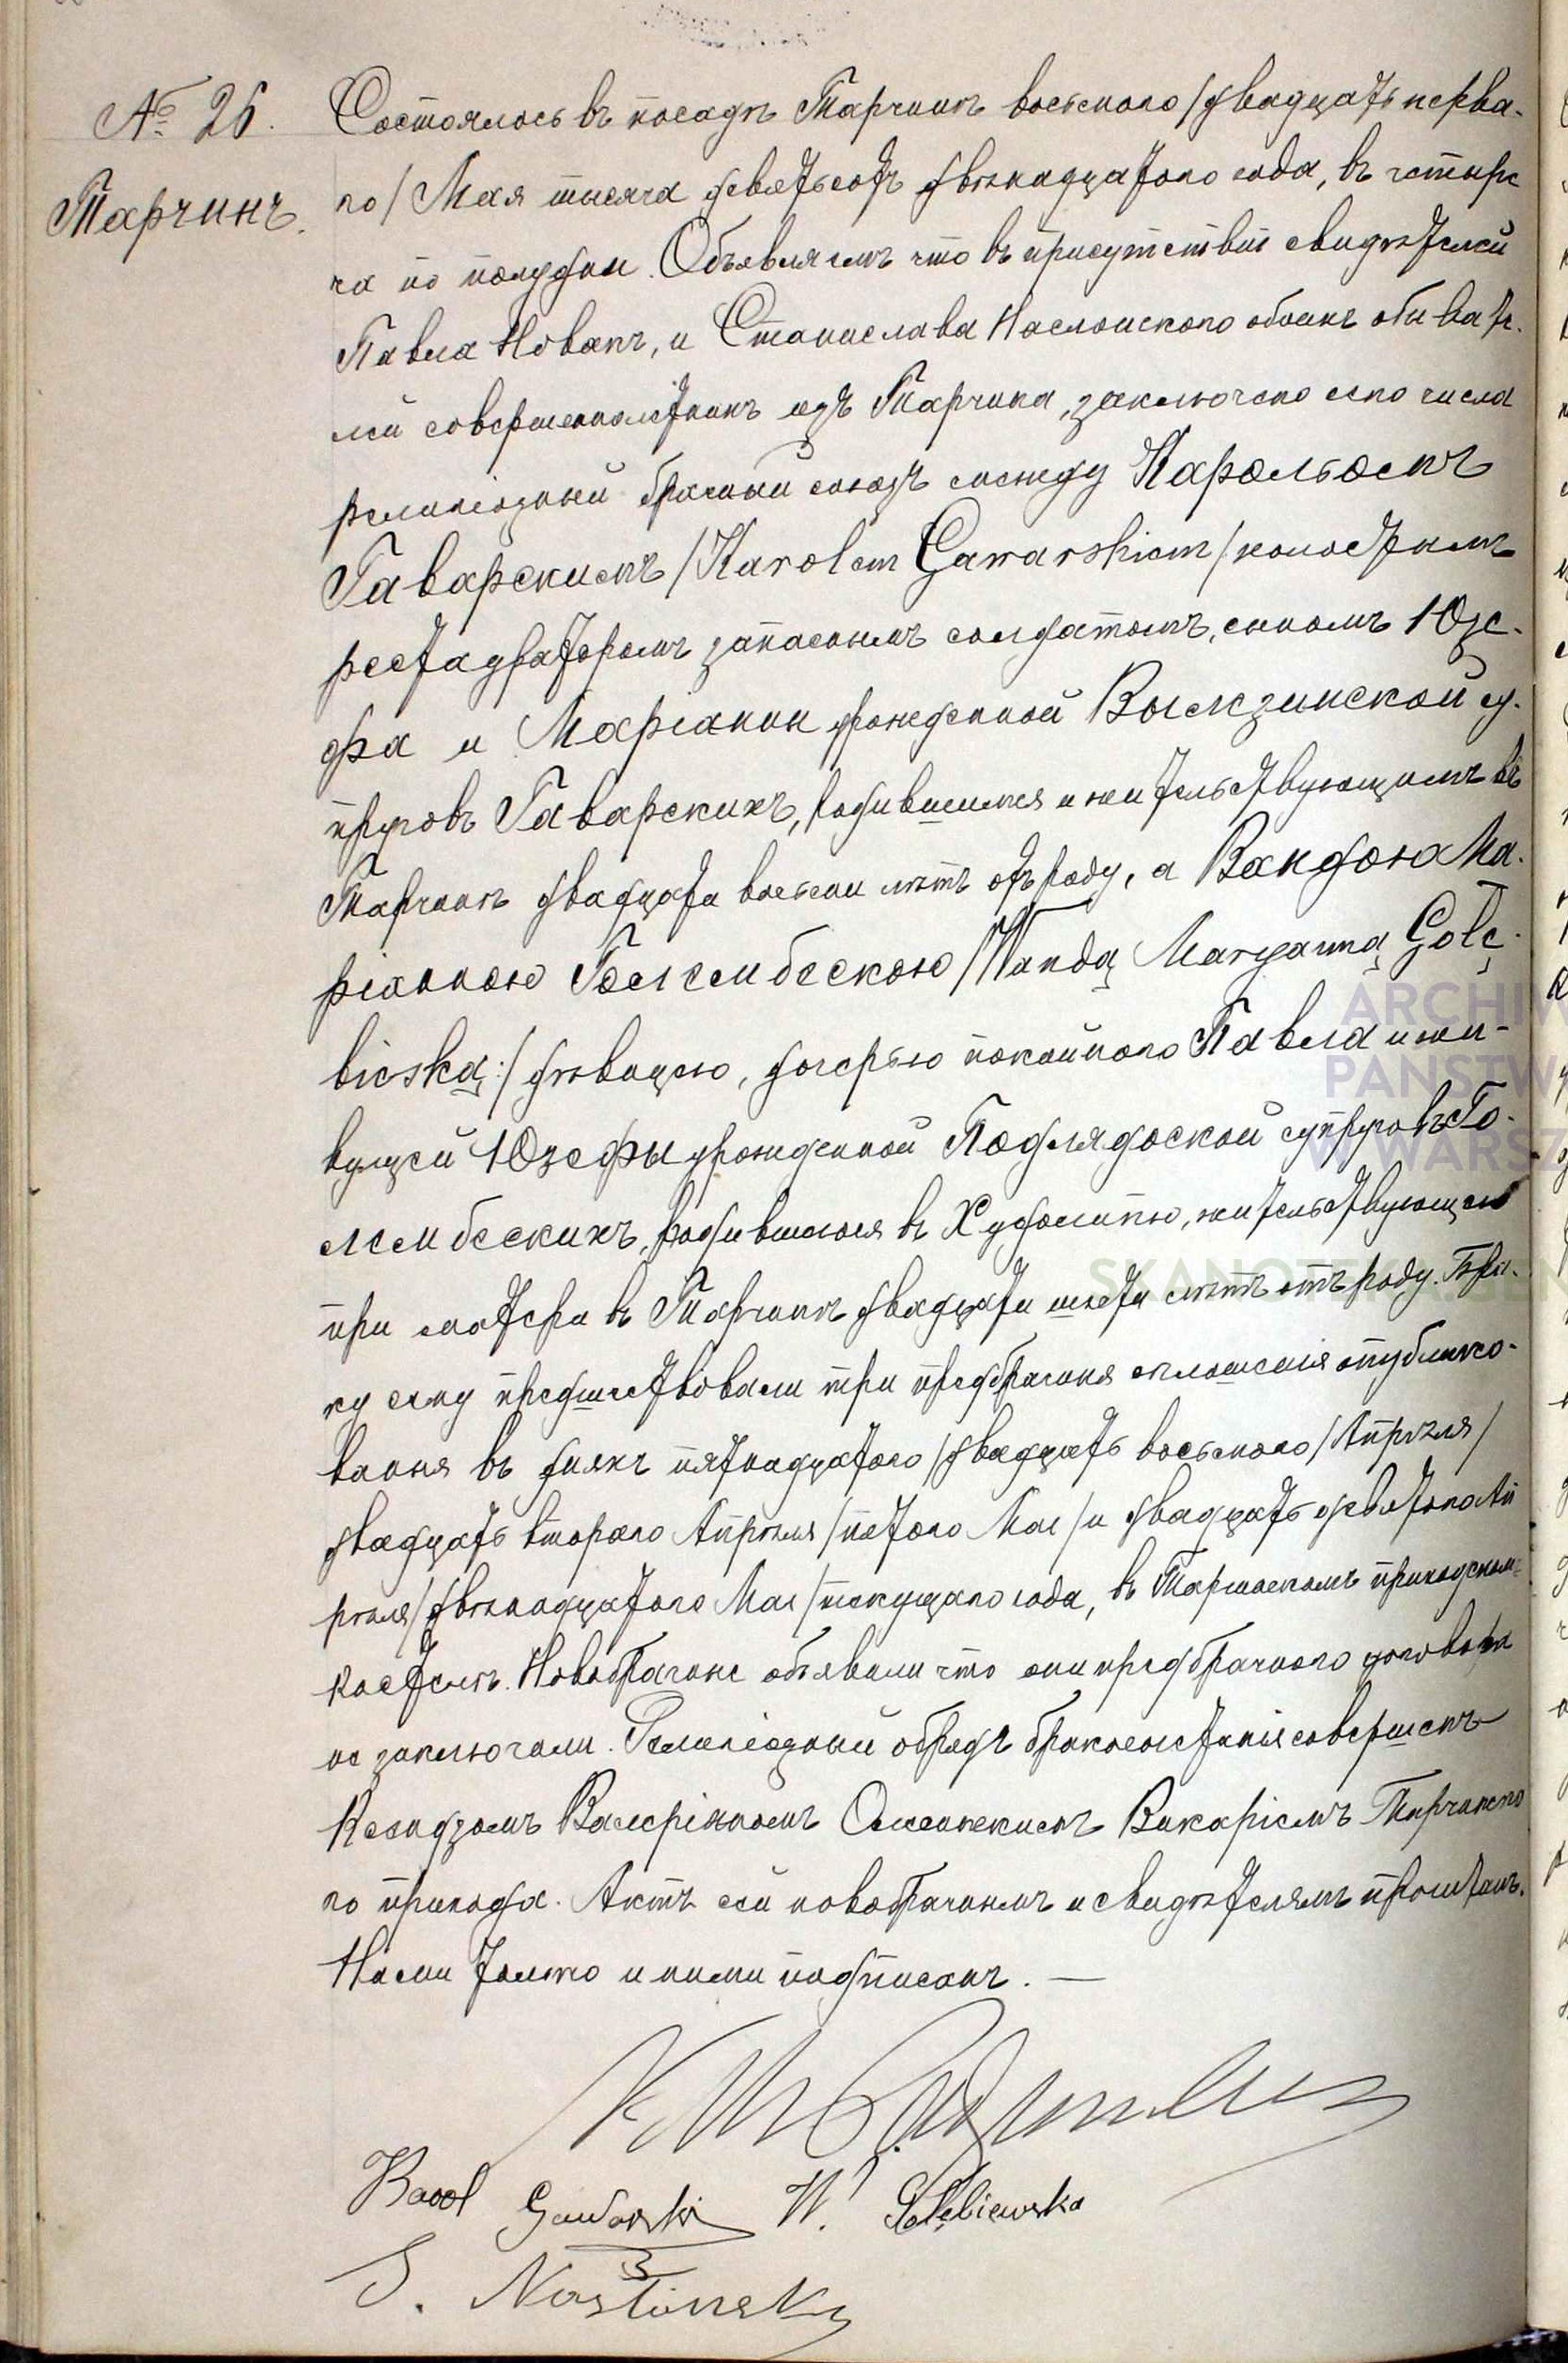 № 26.
Тарчинъ.
Состоялось въ посадѣ Тарчинѣ восьмого /двадцать перва-
го/ Мая тысяча девятьсотъ двѣнадцатого года, въ четыре
ча по полудни. Объявляемъ что въ присутствіи свидѣтелей
Павла Новакъ, и Станислава Наслонского обоихъ обивате-
лей совершеннолѣтнихъ изъ Тарчина, заключено сего числа
религіозный брачный союзъ между Карольомъ
Гаварскимъ /Karolem Gawarskiem/ холостымъ
реставраторомъ запаснымъ солдатомъ, сыномъ Юзе-
фа и Маріанны урожденной Вылкзинской су-
пруговъ Гаварскихъ, родившимся и жительствующимъ въ
Тарчинѣ двадцати восьми лѣтъ отъ роду, а Вандою Ма-
ріанною Голембескою /Wandą Maryanną Gołę-
bieską:/ дѣвицею, дочерью покойного Павла и жи-
вущей Юзефы урожденной Подлядоской супруговъ Го-
лембескихъ, родившеюся въ Худолипю, жительствующею
при матери въ Тарчинѣ двадцати шести лѣтъ отъ роду. Бра-
ку сему предшествовали три предбрачныя оглашенія опублико-
ванныя въ дняхъ пятнадцатого /двадцать восьмого/ Апрѣля/
двадцать второго Апрѣля /пятого Мая/ и двадцать девятого Ап
рѣля/ двѣнадцатого Мая/ текущаго года, въ Тарчинскомъ приходскомъ
костелѣ. Новобрачные объявили что они предбрачного договора
не заключали. Религіозный обрядъ бракосочетанія совершенъ
Ксендзомъ Валеріяномъ Викаріемъ Тарчинско
го прихода. Актъ сей новобрачнымъ и свидѣтелямъ прочитанъ.
Нами только и ними подписанъ. —
Karol Gawarski W. Gołębiewska
S. Nasłonski
ARCHIW
PAŃSTW
W WARSZ